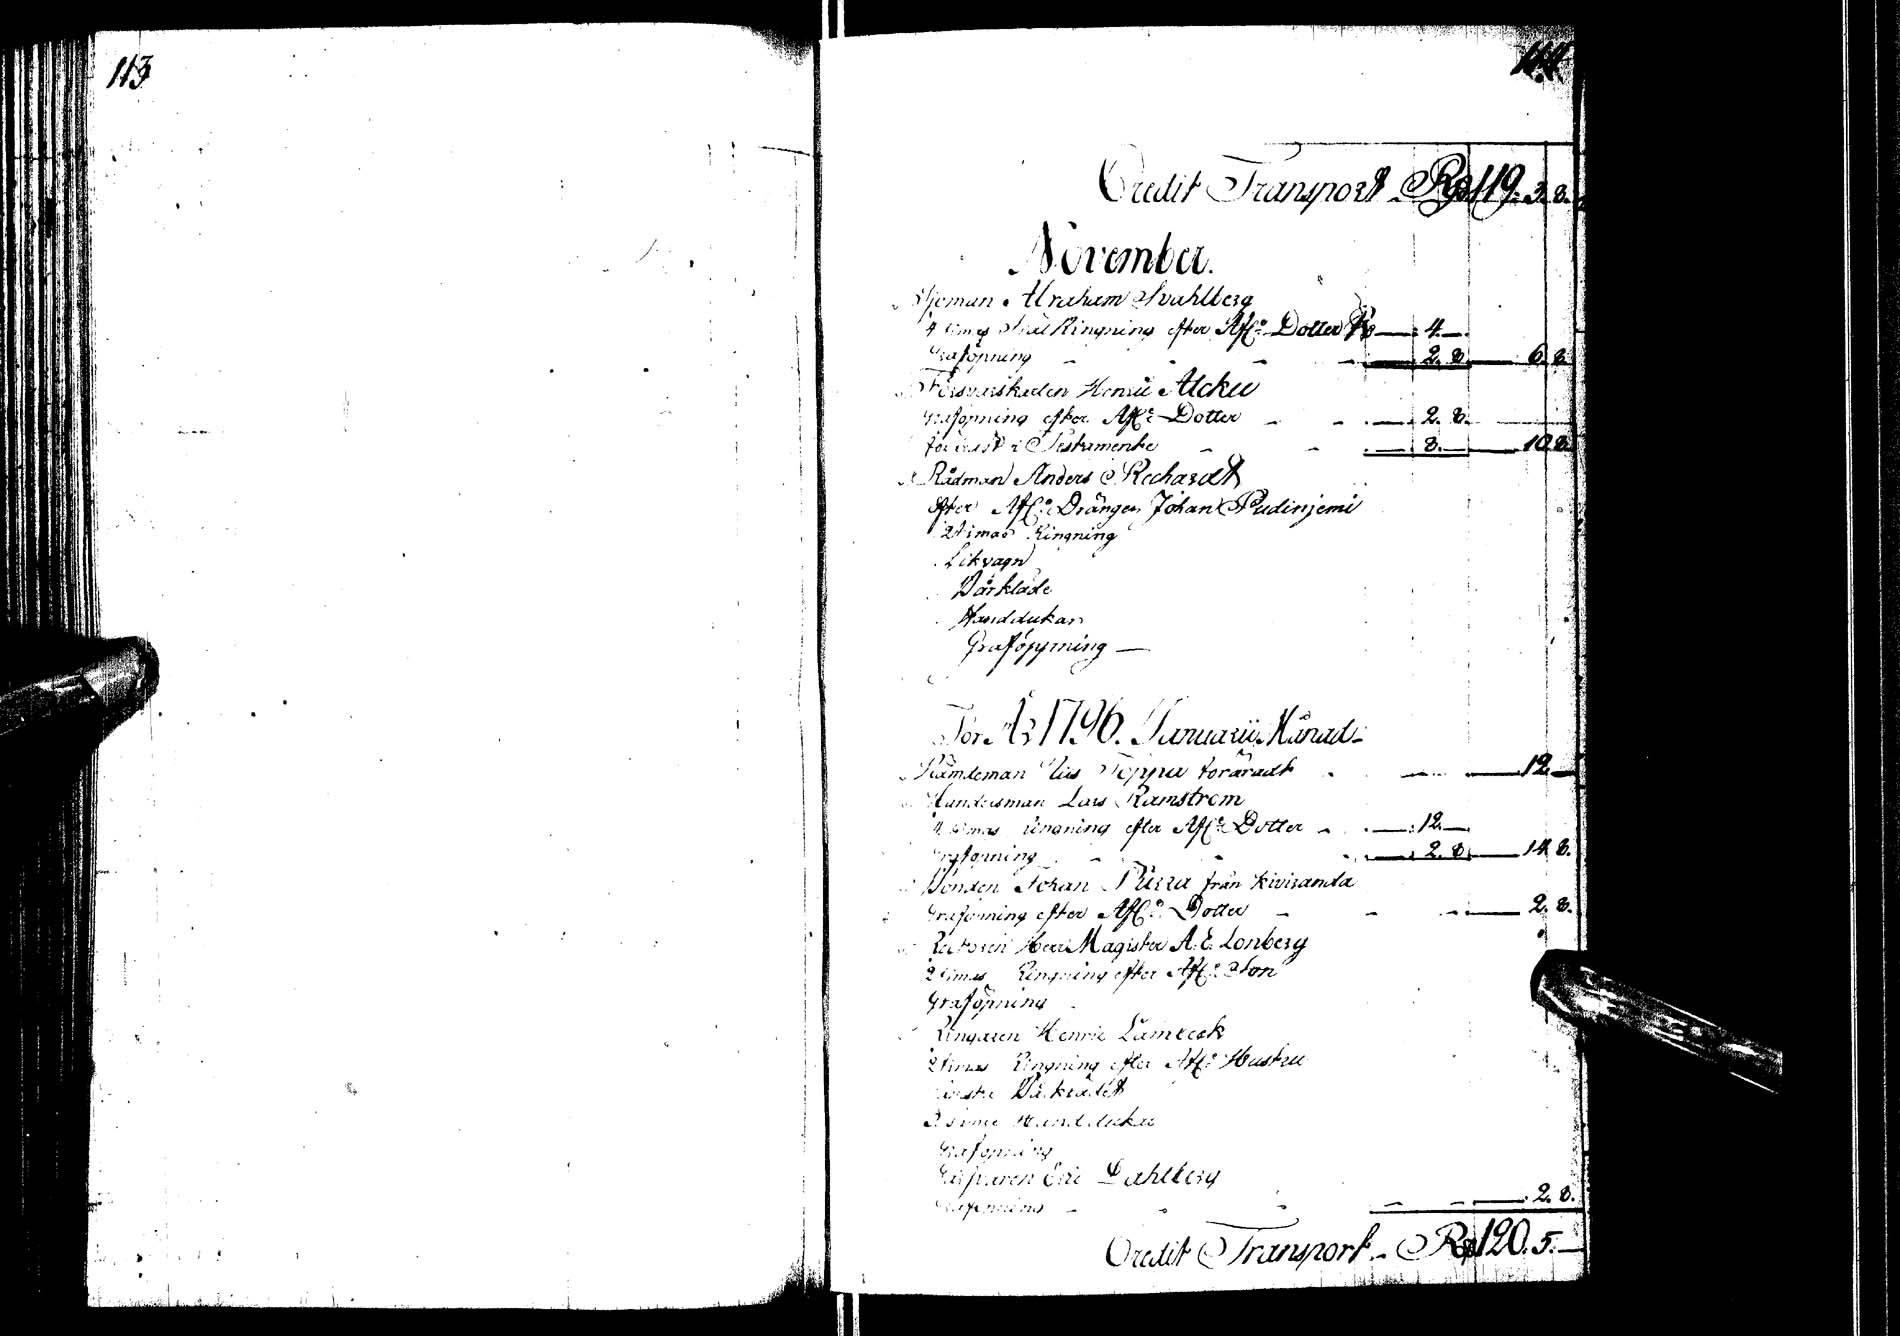 113
114
Credit Transport Rd 119. 3. 8.
November.
Abraham Svahlberg
4 Ringning efter Afl: Dotter R — 4. —
Graföpning — 2. 8. — 6. 8.
Henric Alcku
Graföpning efter Afl: Dotter — 2. 8.
Testamente — 8. — 10. 8.
Rådman Anders Rechardt
efter Afl: Drängen Johan Pudinjemi
2 timas Ringning
Likvagn
Bårkläde
Handdukar
Graföppning —
För År 1796. Januarii Månad
Nämdeman Toppu föräradt — 12. —
Handelsman Lars Ramström
4 timas Ringning efter Afl: Dotter — 12. —
Graföpning — 2. 8. — 14. 8.
Bonden Johan från Kiviranda
Graföpning efter Afl: Dotter — 2. 8.
Rectoren Herr Magister A. E. Lonberg
2 timas Ringning efter Afl: Son
Graföpning
Ringaren Henric
2 timas Ringning efter Afl: Hustru
Bårklädet
Handdukar
Graföpning
Eric Dahlberg
Graföpning — 2. 8.
Credit Transport Rd 120. 5. —